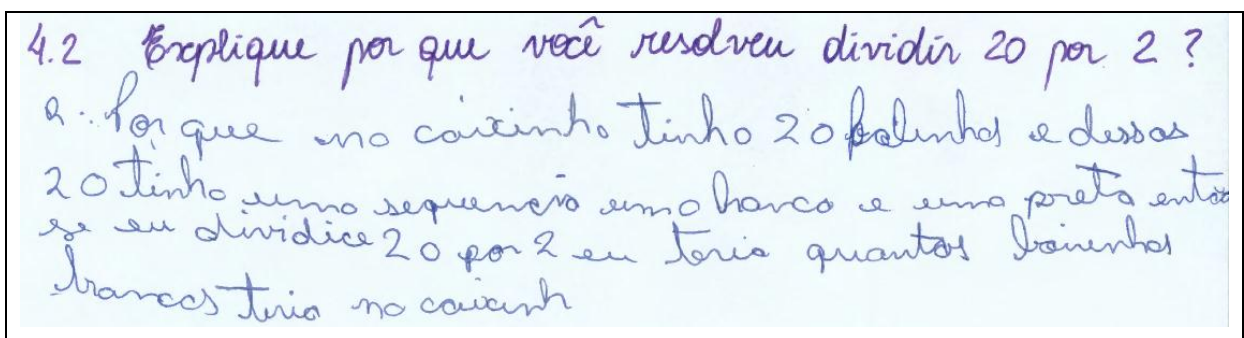 4.2 Explique por que você resolveu dividir 20 por 2?
R: Por que na caixinha tinha 20 bolinhas e dessas
20 tinha uma sequencia uma branca e uma preta então
se eu dividice 20 por 2 eu teria quantas
brancas teria na caixinh